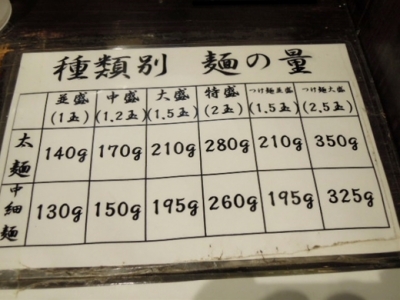 種類別 麺の量
並盛 中盛 大盛 特盛 つけ麺並盛 つけ麺大盛
(1玉) (1.2玉) (1.5玉) (2玉) (1.5玉) (2.5玉)
太麺 140g 170g 210g 280g 210g 350g
中細麺 130g 150g 195g 260g 195g 325g